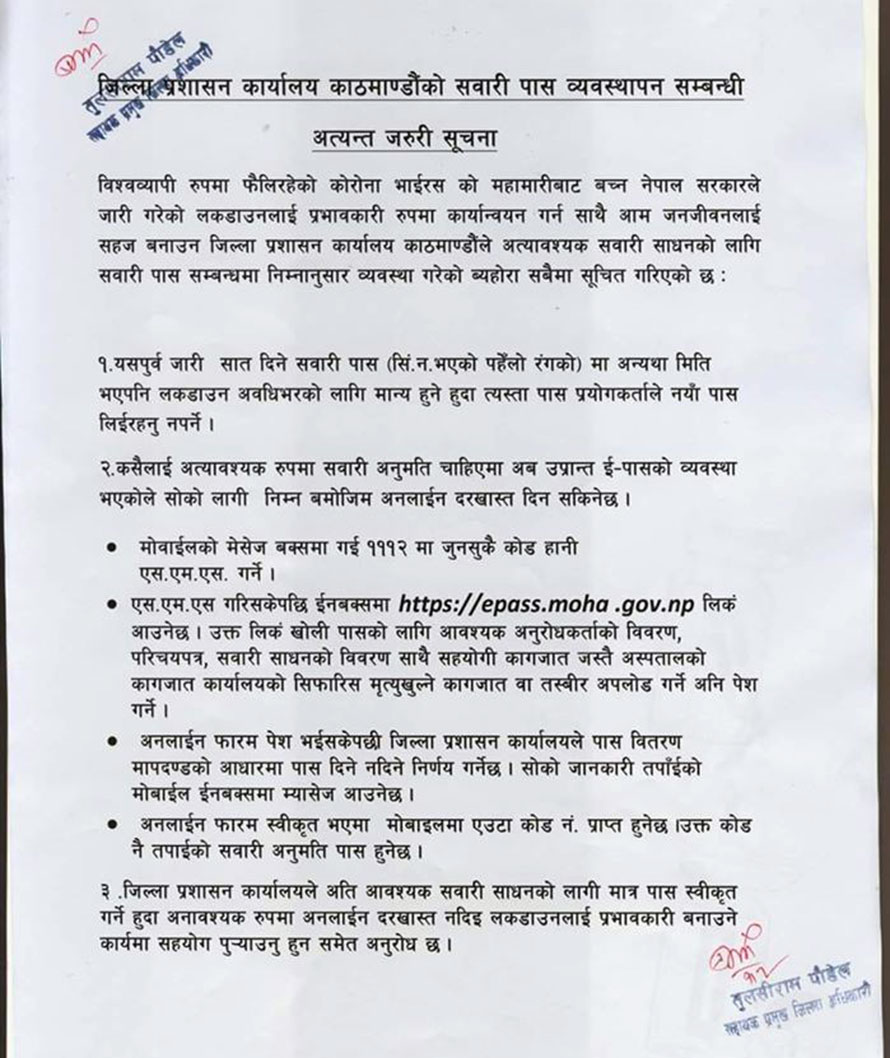 तुलसीराम पौडेल
सहायक प्रमुख जिल्ला अधिकारी
जिल्ला प्रशासन कार्यालय काठमाण्डौंको सवारी पास व्यवस्थापन सम्बन्धी
अत्यन्त जरुरी सूचना
विश्वव्यापी रुपमा फैलिरहेको कोरोना भाईरस को महामारीबाट बच्न नेपाल सरकारले
जारी गरेको लकडाउनलाई प्रभावकारी रुपमा कार्यान्वयन गर्न साथै आम जनजीवनलाई
सहज बनाउन जिल्ला प्रशासन कार्यालय काठमाण्डौंले अत्यावश्यक सवारी साधनको लागि
सवारी पास सम्बन्धमा निम्नानुसार व्यवस्था गरेको ब्यहोरा सबैमा सूचित गरिएको छ :
१.यसपुर्व जारी सात दिने सवारी पास (सिं.न.भएको पहेँलो रंगको) मा अन्यथा मिति
भएपनि लकडाउन अवधिभरको लागि मान्य हुने हुदा त्यस्ता पास प्रयोगकर्ताले नयाँ पास
लिईरहनु नपर्ने ।
२.कसैलाई अत्यावश्यक रुपमा सवारी अनुमति चाहिएमा अब उप्रान्त ई-पासको व्यवस्था
भएकोले सोको लागी निम्न बमोजिम अनलाईन दरखास्त दिन सकिनेछ ।
• मोवाईलको मेसेज बक्समा गई १११२ मा जुनसुकै कोड हानी
एस.एम.एस. गर्ने ।
• एस.एम.एस गरिसकेपछि ईनबक्समा https://epass.moha .gov.np लिकं
आउनेछ । उक्त लिकं खोली पासको लागि आवश्यक अनुरोधकर्ताको विवरण,
परिचयपत्र, सवारी साधनको विवरण साथै सहयोगी कागजात जस्तै अस्पतालको
कागजात कार्यालयको सिफारिस मृत्युखुल्ने कागजात वा तस्बीर अपलोड गर्ने अनि पेश
गर्ने ।
• अनलाईन फारम पेश भईसकेपछी जिल्ला प्रशासन कार्यालयले पास वितरण
मापदण्डको आधारमा पास दिने नदिने निर्णय गर्नेछ । सोको जानकारी तपाँईको
मोबाईल ईनबक्समा म्यासेज आउनेछ ।
• अनलाईन फारम स्वीकृत भएमा मोबाइलमा एउटा कोड नं. प्राप्त हुनेछ ।उक्त कोड
नै तपाईको सवारी अनुमति पास हुनेछ ।
३ .जिल्ला प्रशासन कार्यालयले अति आवश्यक सवारी साधनको लागी मात्र पास स्वीकृत
गर्ने हुदा अनावश्यक रुपमा अनलाईन दरखास्त नदिइ लकडाउनलाई प्रभावकारी बनाउने
कार्यमा सहयोग पुऱ्याउनु हुन समेत अनुरोध छ ।
तुलसीराम पौडेल
सहायक प्रमुख जिल्ला अधिकारी